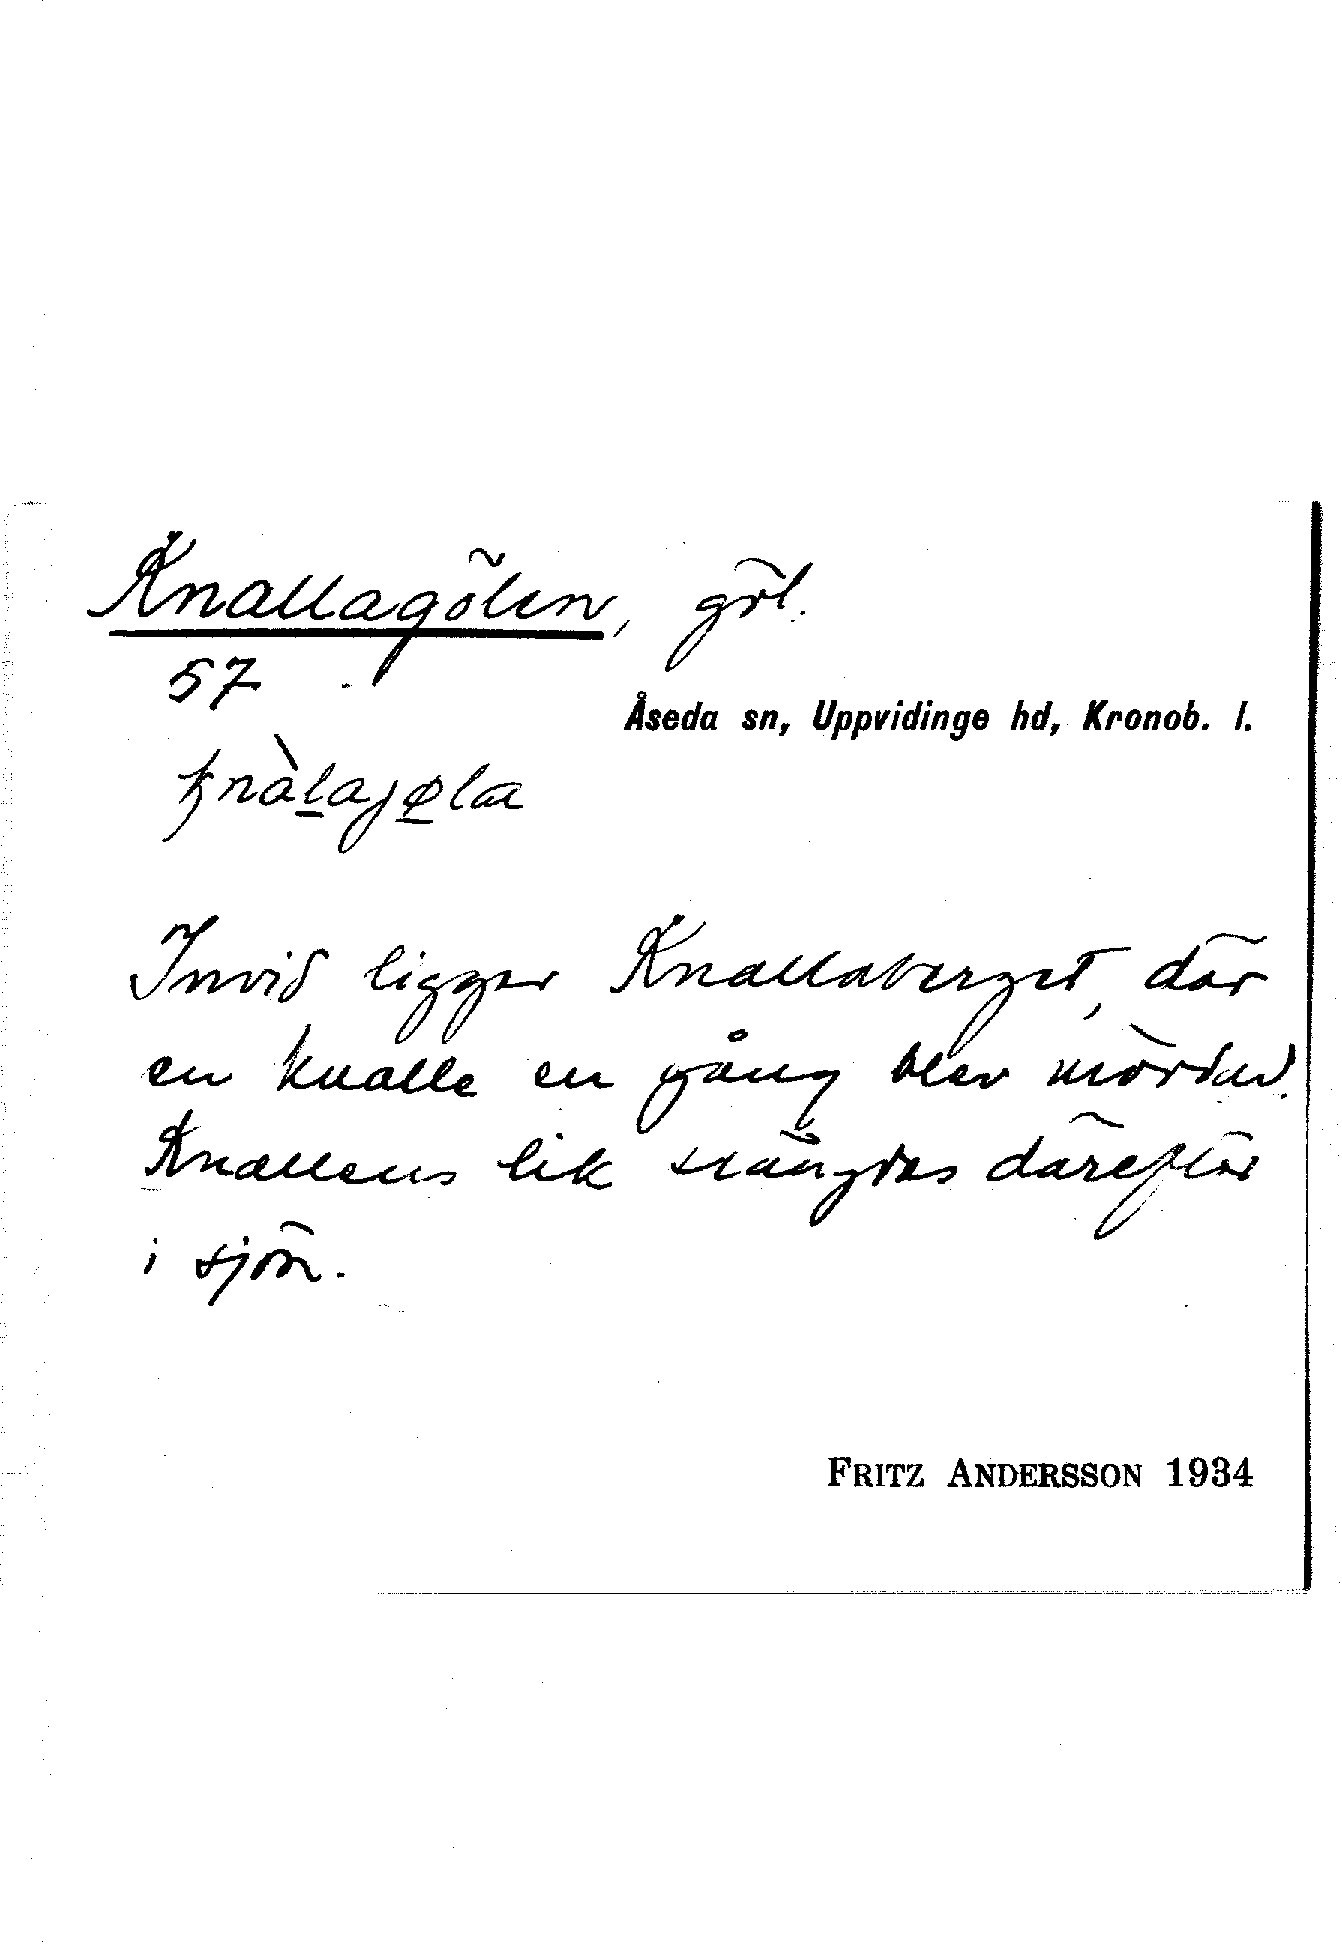 Knallagölen, göl.
57
Åseda sn, Uppvidinge hd, Kronob. l.
knàlajøla
Invid ligger Knallaberget, där
en knalle en gång blev mördad.
Knallens lik slängdes därefter
i sjön.
FRITZ ANDERSSON 1934